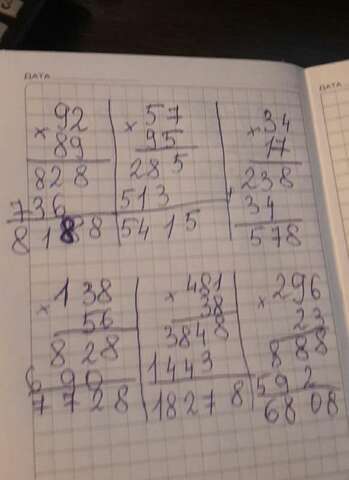 ДАТА
ДАТА
92
× 89
828
736
8188
57
× 95
285
513
5415
34
× 17
238
34
578
138
× 56
828
690
7728
481
× 38
3848
1443
18278
296
× 23
888
592
6808